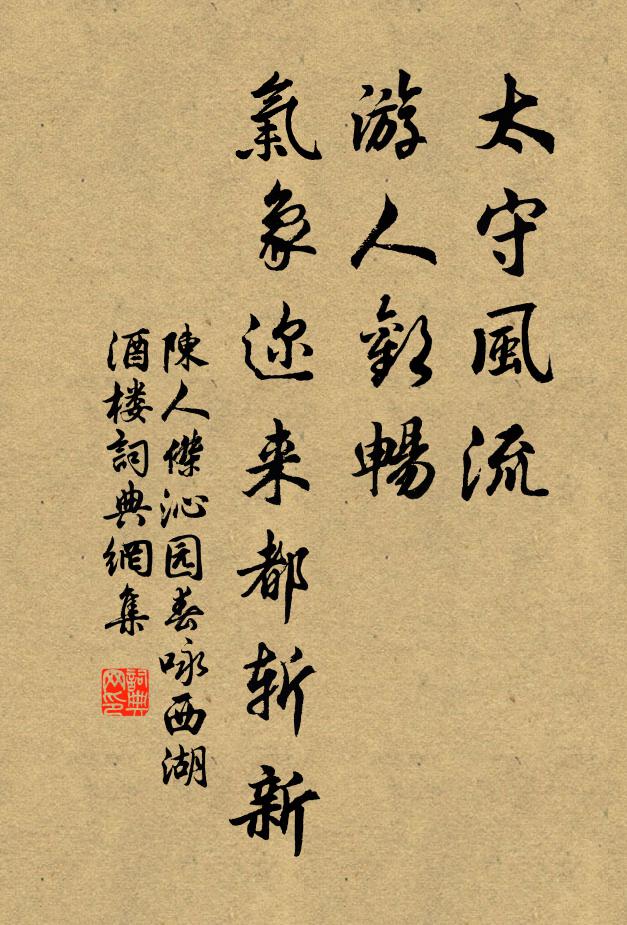 太守風流
游人歡暢
氣象迩来都斬新
陳人傑沁园春咏西湖
酒楼詞典網集
詞典网印